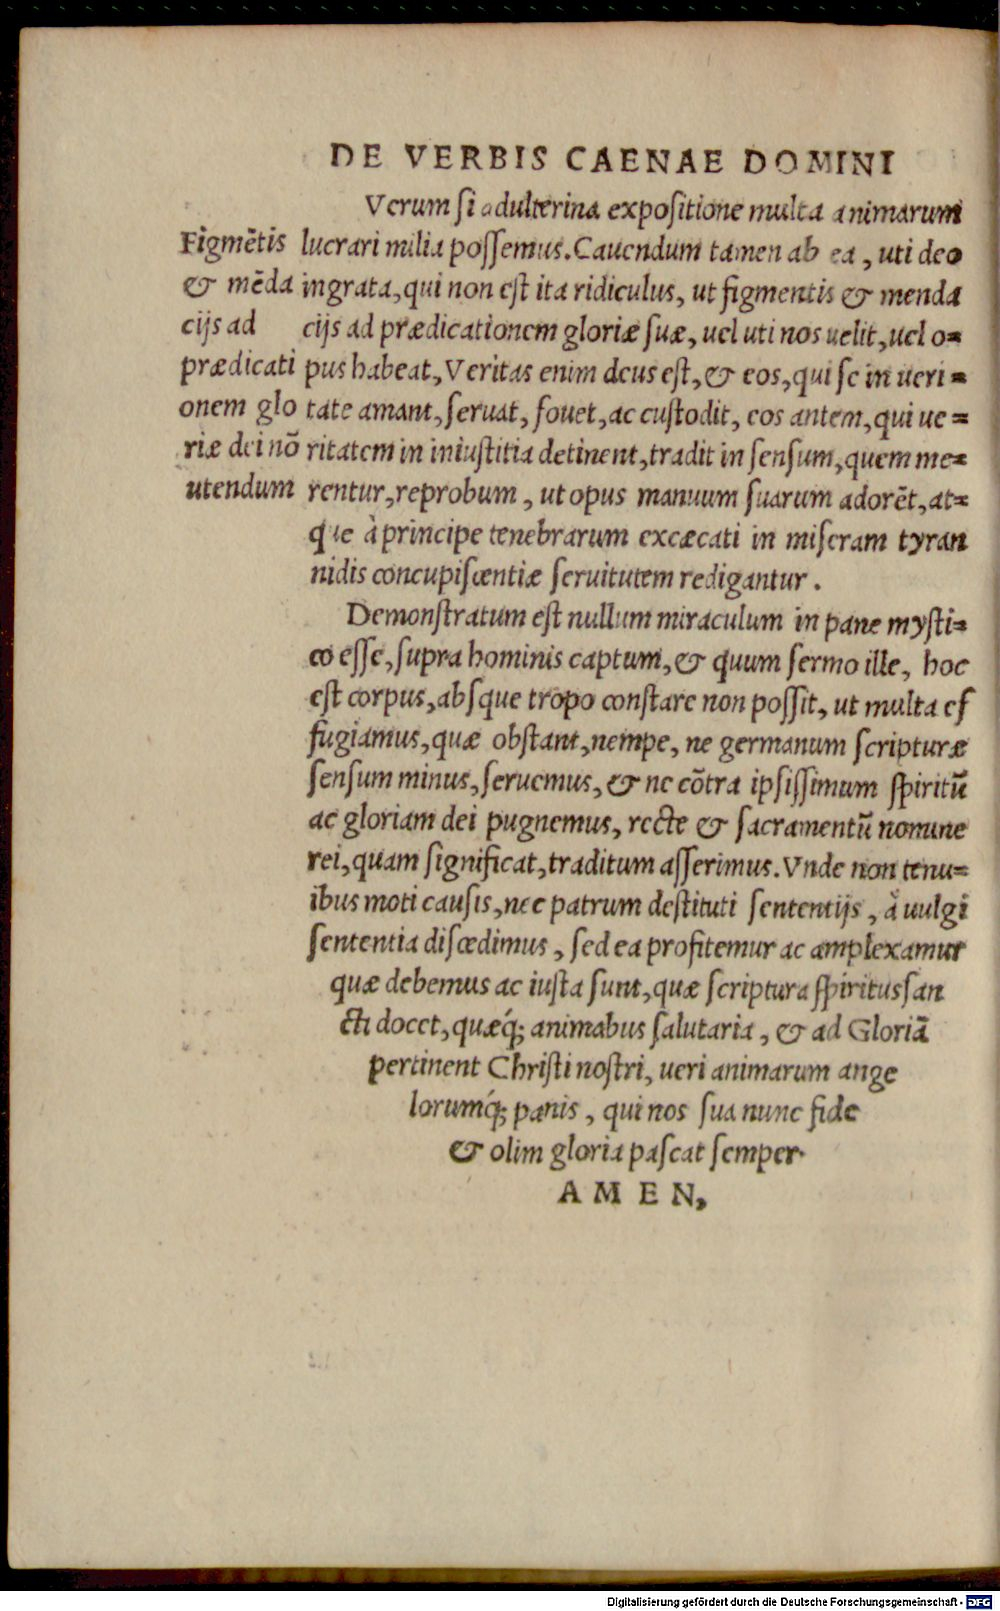 DE VERBIS CAENAE DOMINI
Verum si adulterina expositione multa animarum
lucrari milia possemus. Cauendum tamen ab ea, uti deo
ingrata, qui non est ita ridiculus, ut figmentis & menda
cijs ad prædicationem gloriæ suæ, uel uti nos uelit, uel o=
pus habeat, Veritas enim deus est, & eos, qui se in ueri=
tate amant, seruat, fouet, ac custodit, eos antem, qui ue=
ritatem in iniustitia detinent, tradit in sensum, quem me=
rentur, reprobum, ut opus manuum suarum adorēt, at=
que à principe tenebrarum excæcati in miseram tyran
nidis concupiscentiæ seruitutem redigantur.
Figmētis
& mēda
cijs ad
prædicati
onem glo
riæ dei nō
utendum
Demonstratum est nullum miraculum in pane mysti=
co esse, supra hominis captum, & quum sermo ille, hoc
est corpus, absque tropo constare non possit, ut multa ef
fugiamus, quæ obstant, nempe, ne germanum scripturæ
sensum minus, seruemus, & ne cōtra ipsissimum spiritū
ac gloriam dei pugnemus, recte & sacramentū nomine
rei, quam significat, traditum asserimus. Vnde non tenu=
ibus moti causis, nec patrum destituti sententijs, à uulgi
sententia discedimus, sed ea profitemur ac amplexamur
quæ debemus ac iusta sunt, quæ scriptura spiritus san
cti docet, quæq́; animabus salutaria, & ad Gloriā
pertinent Christi nostri, ueri animarum ange
lorumq́; panis, qui nos sua nunc fide
& olim gloria pascat semper.
AMEN,
Digitalisierung gefördert durch die Deutsche Forschungsgemeinschaft - DFG